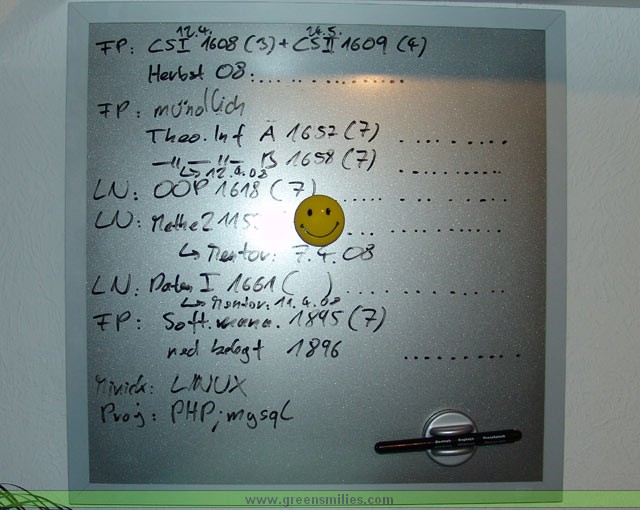 12.4. 24.5.
FP: CSI 1608 (3) + CSII 1609 (4)
Herbst 08: ..............
FP: mündlich
Theo. Inf A 1657 (7) ..........
—"—"— B 1658 (7) ..........
↳ 12.4.08
LN: OOP 1618 (7) ..........
LN: Mathe2 115 ..........
↳ Mentor: 7.4.08
LN: Daten I 1661 ( ) ..........
↳ Mentor: 11.4.08
FP: Soft. mana. 1895 (7)
ned belegt 1896 ..........
LINUX
Proj: PHP; mysql
www.greensmilies.com